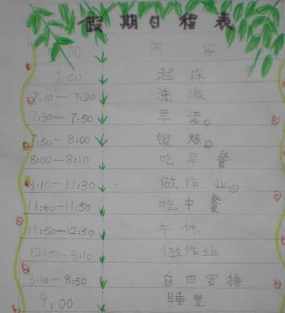 假期日程表
7:00 起床
7:10—7:20 洗漱
7:30—7:50 早读
7:50—8:00 锻炼
8:00—8:10 吃早餐
8:10—11:30 做作业
11:40—11:50 吃中餐
11:50—12:50 午休
做作业
8:50 自由安排
9:00 睡觉